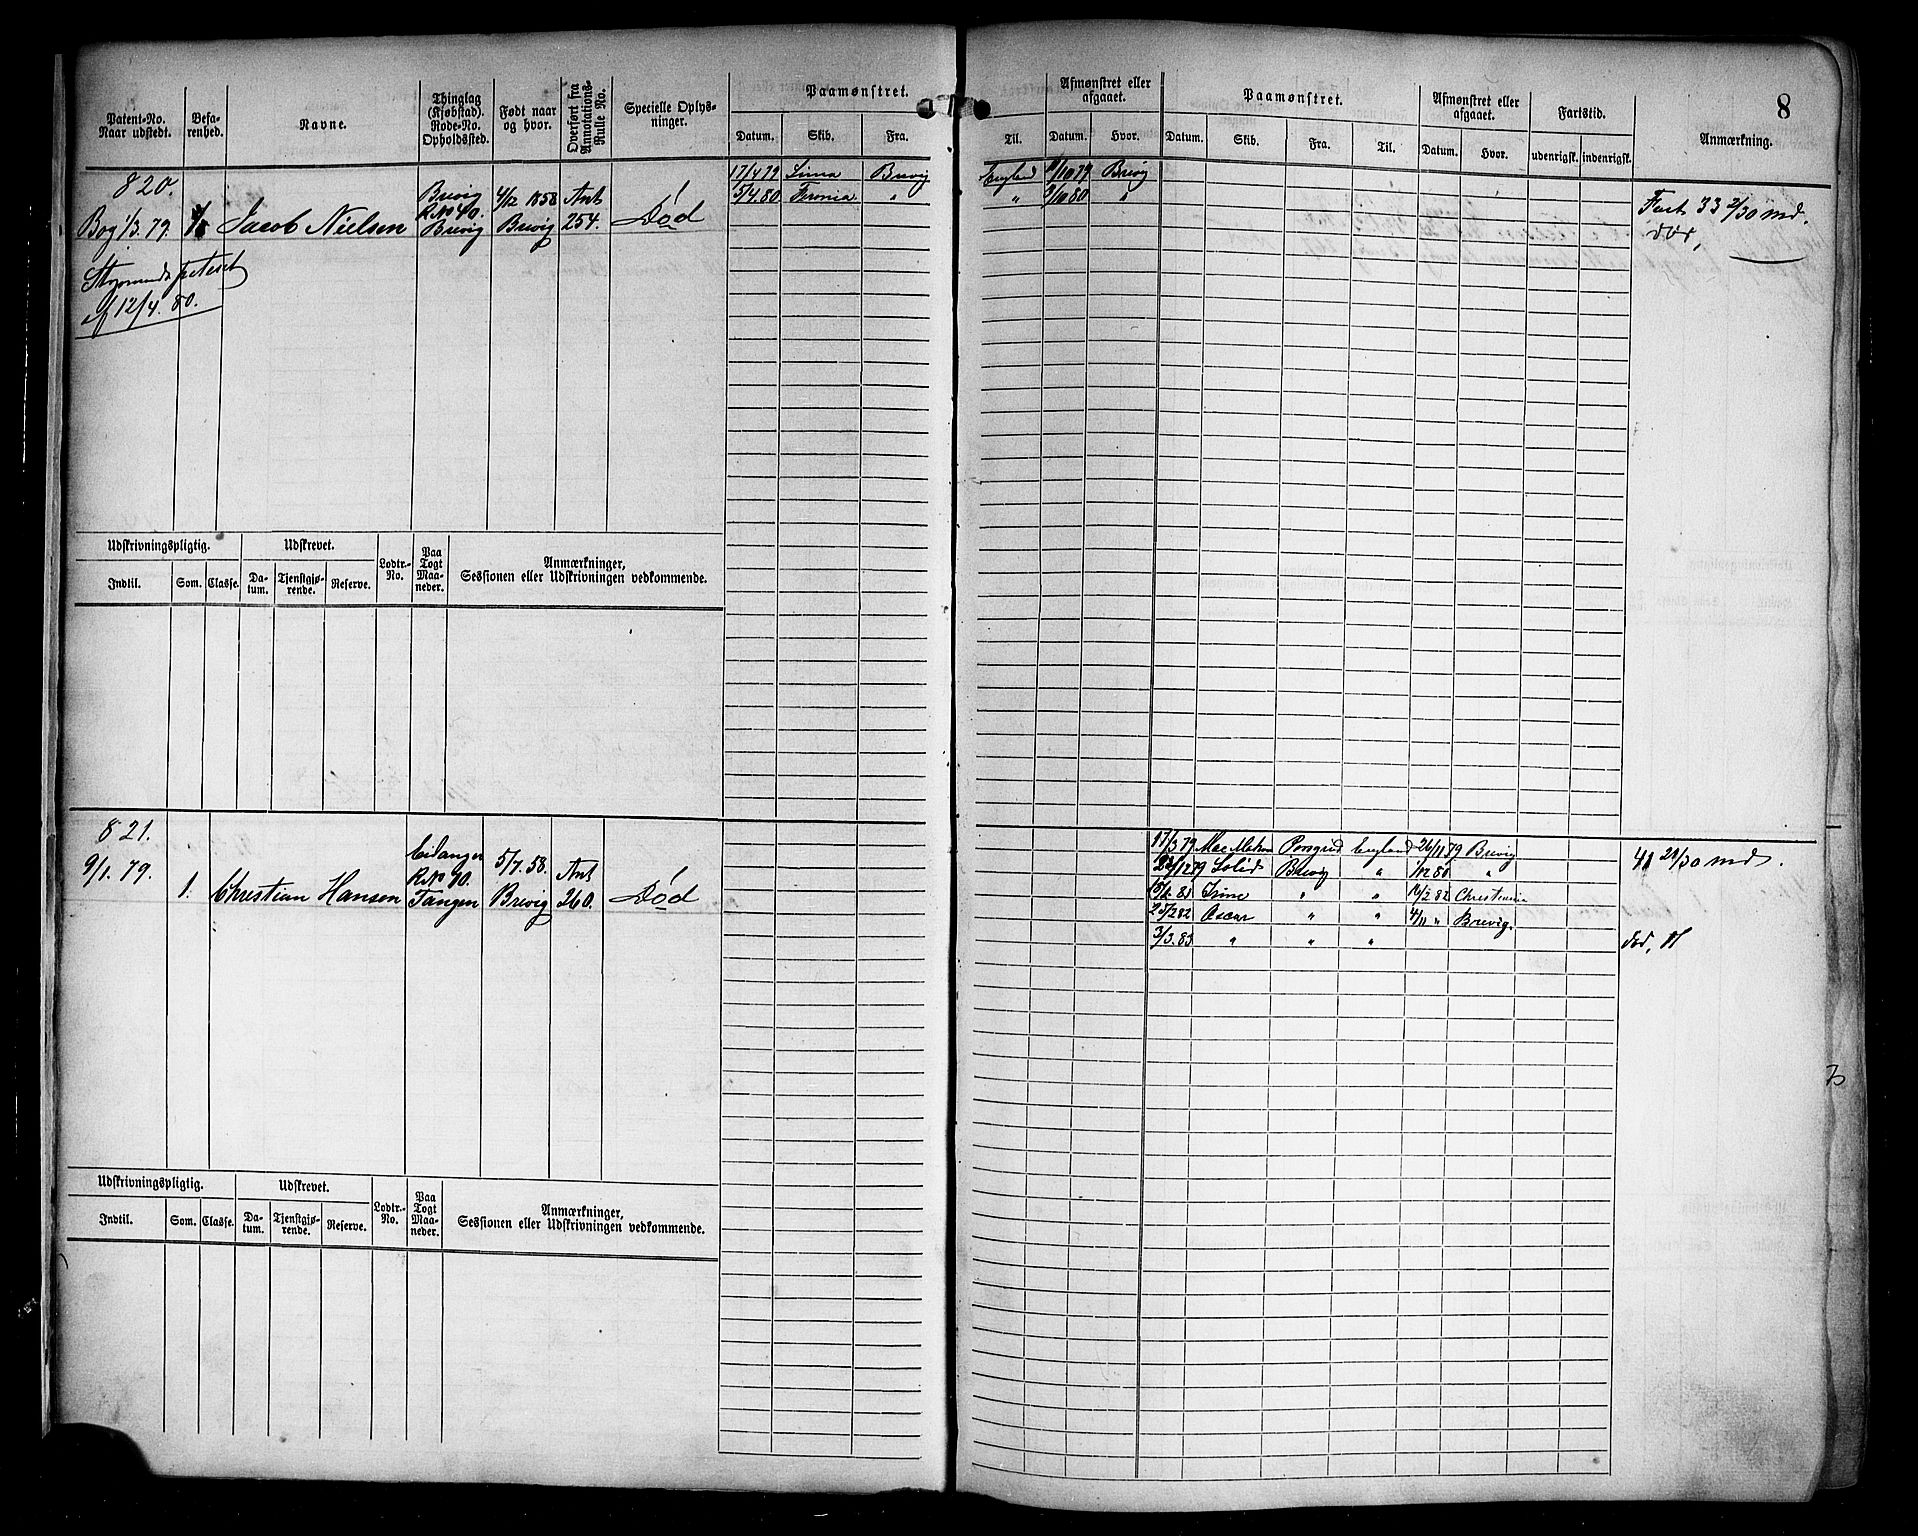 8
Patent-No. Naar udstedt.
Befa-renhed.
Navne.
Thinglag (Kjøbstad). Rode-No. Opholdssted.
Født naar og hvor.
Overført fra Annotations-Rulle No.
Specielle Oplys-ninger.
Paamønstret.
Datum. Skib. Fra.
Til.
Afmønstret eller afgaaet.
Datum. Hvor.
Paamønstret.
Datum. Skib. Fra. Til.
Afmønstret eller afgaaet.
Datum. Hvor.
Fartstid.
udenrigsk. indenrigsk.
Anmærkning.
820.
Bog 1/3. 79.
Jacob Nielsen
Brevig
R No 40.
Brevig
4/12 1858
Brevig
Ant
254.
Død
17/4 79 Brevig England 11/10 79 Brevig
5/4. 80 " " 3/10 80 "
Fart 33 2/30 md.
død,
af 12/4. 80.
Udskrivningspligtig. Udskrevet.
Lodtr.-No.
Paa Togt Maa-neder.
Anmærkninger,
Sessionen eller Udskrivningen vedkommende.
Indtil. Som. Classe. Da-tum. Tjenstgjø-rende. Reserve.
821.
9/1. 79.
1.
Christian Hansen
Eidanger
Tangen
5/7. 58.
Brevig
Ant
260.
Død
17/3 79 Mac Mahon Porsgrund England 26/11 79 Brevig
Solid Brevig " "
Irene " " Christiania
Oscar " " Brevig.
3/3. 83 " " "
41 28/30 md.
død,
Udskrivningspligtig. Udskrevet.
Lodtr.-No.
Paa Togt Maa-neder.
Anmærkninger,
Sessionen eller Udskrivningen vedkommende.
Indtil. Som. Classe. Da-tum. Tjenstgjø-rende. Reserve.